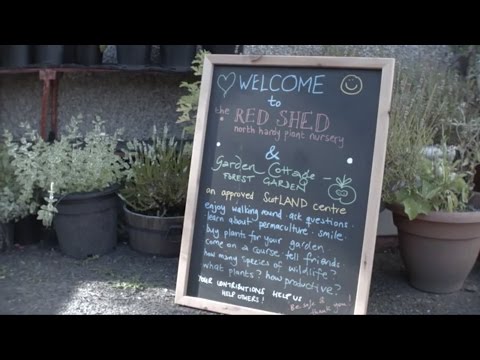 WELCOME
to
the RED SHED
north hardy plant nursery
&
Garden Cottage -
FOREST GARDEN
an approved SustLAND centre
enjoy walking round · ask questions ·
· learn about permaculture · smile ·
buy plants for your garden
come on a course tell friends
how many species of wildlife?
what plants? how productive?
YOUR CONTRIBUTIONS HELP US
HELP OTHERS!
Be safe &
thank you!